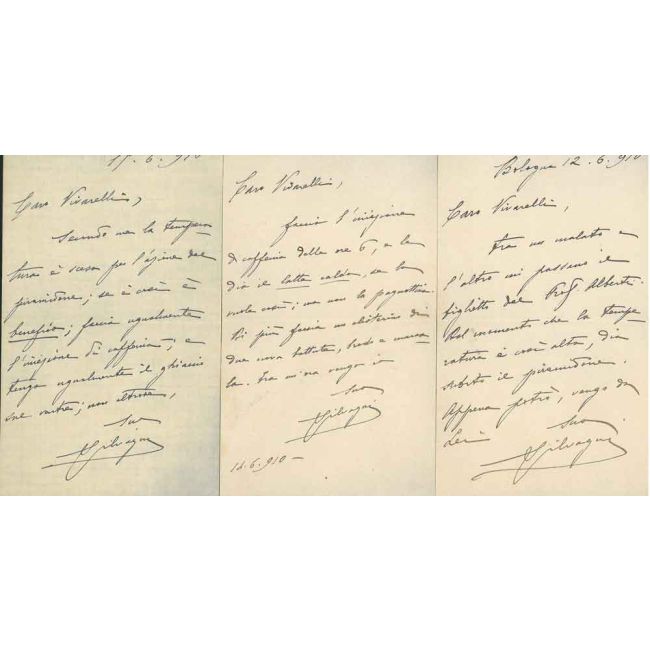 17.6.910
Caro Vivarelli,
Secondo me la tempera
tura è scesa per l'azione del
piramidone; se è così è
benefico; faccia ugualmente
l'iniezione di caffeina; e
tenga ugualmente il ghiaccio
sul ventre; non altro.
Suo
Silvagni
Caro Vivarelli,
faccia l'iniezione
di caffeina delle ore 6, e le
dia il latte caldo, se lo
vuole così; ma non la
di più faccia un clisterino di
due uova battute, brodo e marsa
la. Fra mi
Suo
Silvagni
14.6.910 —
Bologna 12.6.910
Caro Vivarelli,
Fra un malato e
l'altro mi passano il
biglietto del Prof. Alberti.
Dal momento che la tempe
ratura è così alta, dia
subito il piramidone.
Appena potrò, vengo da
Lei
Suo
Silvagni